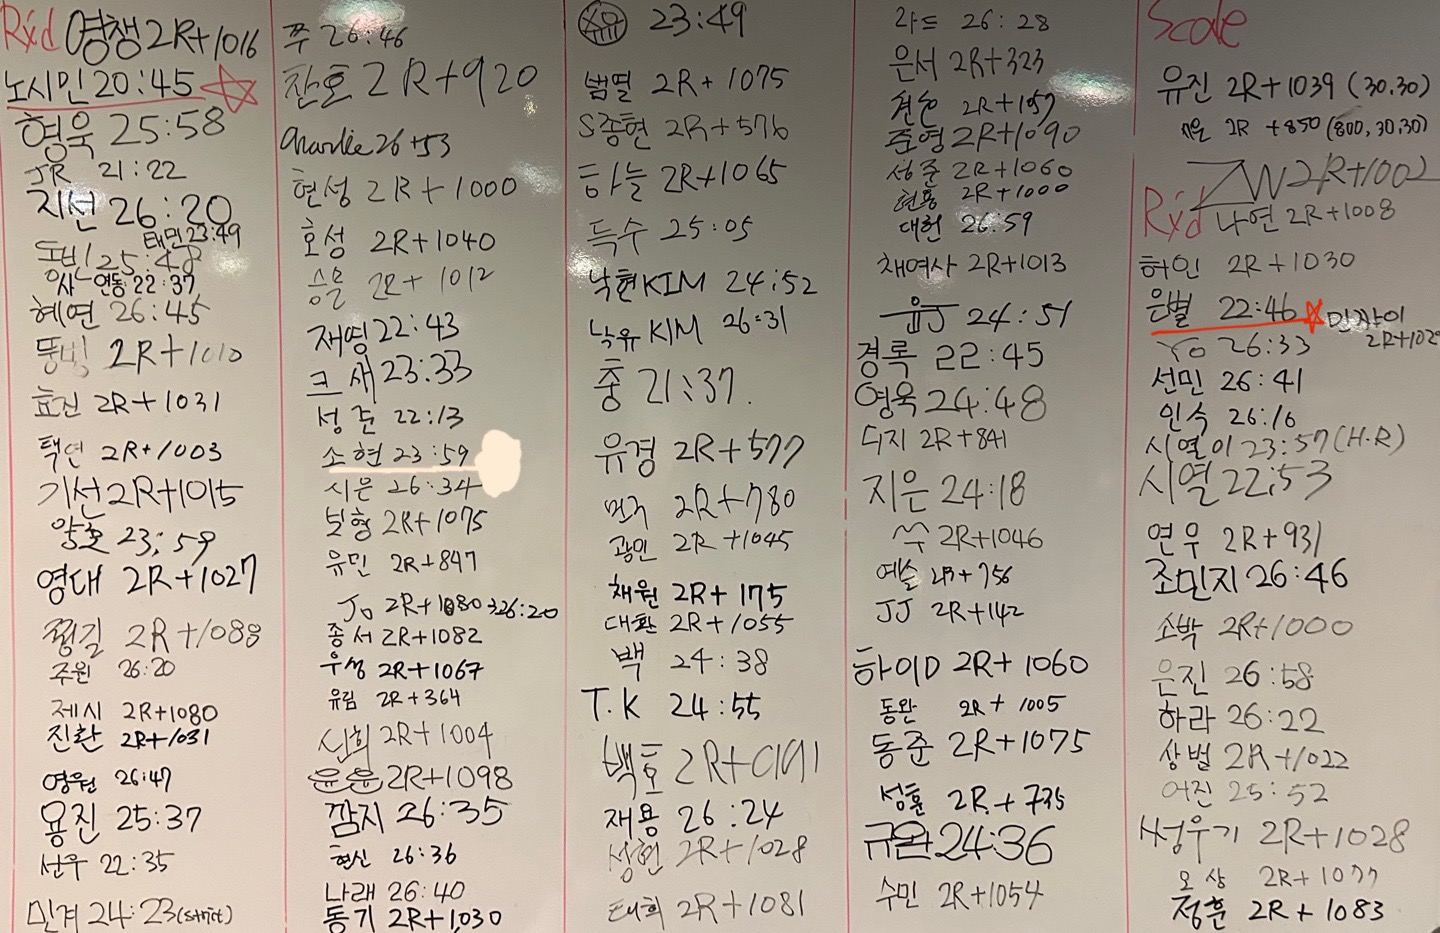 Rx'd 영쟁 2R+1016
노시민 20:45
형욱 25:58
JR 21:22
지선 26:20
태민 23:49
동빈 25:48
연동 22:37
혜연 26:45
뚱빙 2R+1010
효진 2R+1031
택연 2R+1003
기선 2R+1015
양호 23:59
영대 2R+1027
쩡길 2R+1088
주원 26:20
제시 2R+1080
진환 2R+1031
영원 26:47
용진 25:37
선우 22:35
민계 24:23 (strict)
쭈 26:46
찬호 2R+920
Charlie 26+53
현성 2R+1000
호성 2R+1040
승운 2R+1012
재영 22:43
크새 23:33
성준 22:13
소현 23:59
시은 26:34
보형 2R+1075
유민 2R+847
Jo 2R+1080 → 26:20
종서 2R+1082
우성 2R+1067
유림 2R+364
신희 2R+1004
윤윤 2R+1098
깜지 26:35
현신 26:36
나래 26:40
동기 2R+1,030
23:49
범열 2R+1075
S종현 2R+576
하늘 2R+1065
득수 25:05
낙현KIM 24:52
낙유KIM 26:31
충 21:37.
유경 2R+577
2R+780
광민 2R+1045
채원 2R+175
대환 2R+1055
백 24:38
T.K 24:55
백호 2R+
재용 26:24
성현 2R+1028
태희 2R+1081
라드 26:28
은서 2R+323
2R+1057
준영 2R+1090
성준 2R+1060
현용 2R+1000
대헌 26:59
채여사 2R+1013
윤J 24:51
경록 22:45
영욱 24:48
두지 2R+841
지은 24:18
쑤 2R+1046
예슬 2R+756
JJ 2R+142
하이D 2R+1060
동완 2R+1005
동준 2R+1075
성훈 2R+735
규완 24:36
수민 2R+1054
Scale
유진 2R+1039 (30.30)
2R+850 (800,30,30)
2R+1002
Rx'd 나연 2R+1008
허인 2R+1030
은별 22:46
민장이
Yo 26:33
선민 26:41
인식 26:16
시열이 23:57 (H.R)
시열 22:53
연우 2R+931
조민지 26:46
소박 2R+1000
은진 26:58
하라 26:22
상벌 2R+1022
어진 25:52
써우기 2R+1028
오상 2R+1077
정훈 2R+1083